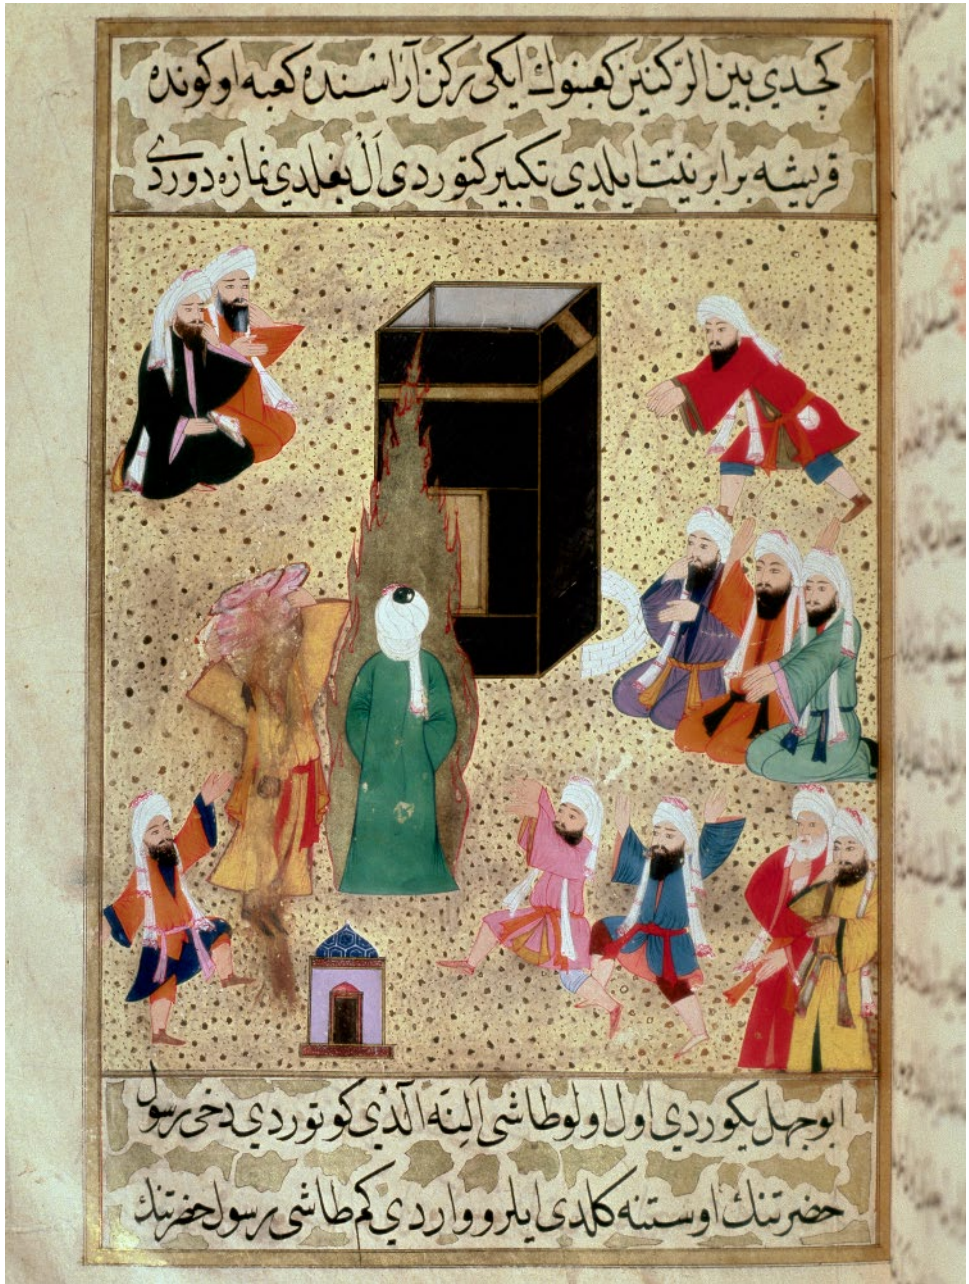 كچدي بين الرّكنين كعبنوڭ ايكی ركن آراسنده كعبه اوكونده
قريشه برابر نيّت ايلدی تكبير كتوردی اَلْ بغلدي نمازه دوردی
ابوجهل يكوردي اول اولو طاشی اَلِنَه آلدي كوتوردي دخی رسول
حضرتنك اوستنه كلدی ايلرو واردي كم طاشی رسول حضرتنك